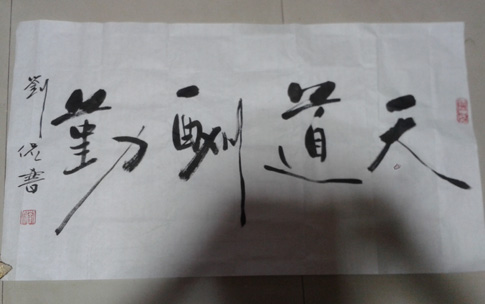 天道酬勤
劉佐書